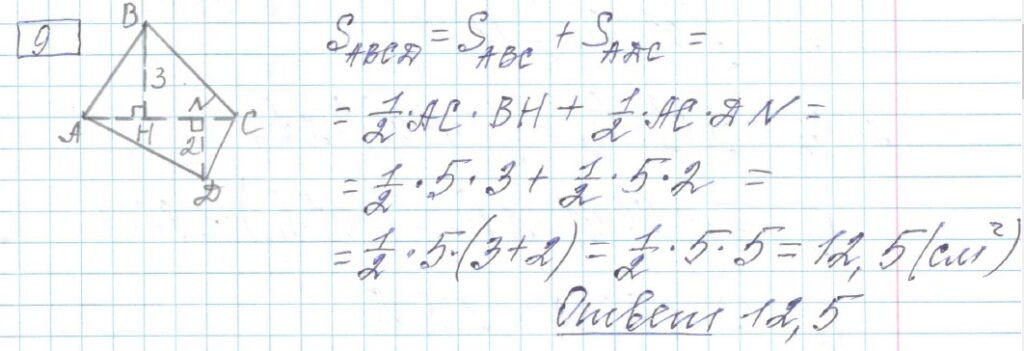 9
B
3
A H N C
2
D
S_ABCD = S_ABC + S_ADC =
= 1/2 · AC · BH + 1/2 · AC · DN =
= 1/2 · 5 · 3 + 1/2 · 5 · 2 =
= 1/2 · 5 · (3+2) = 1/2 · 5 · 5 = 12,5 (см²)
Ответ 12,5